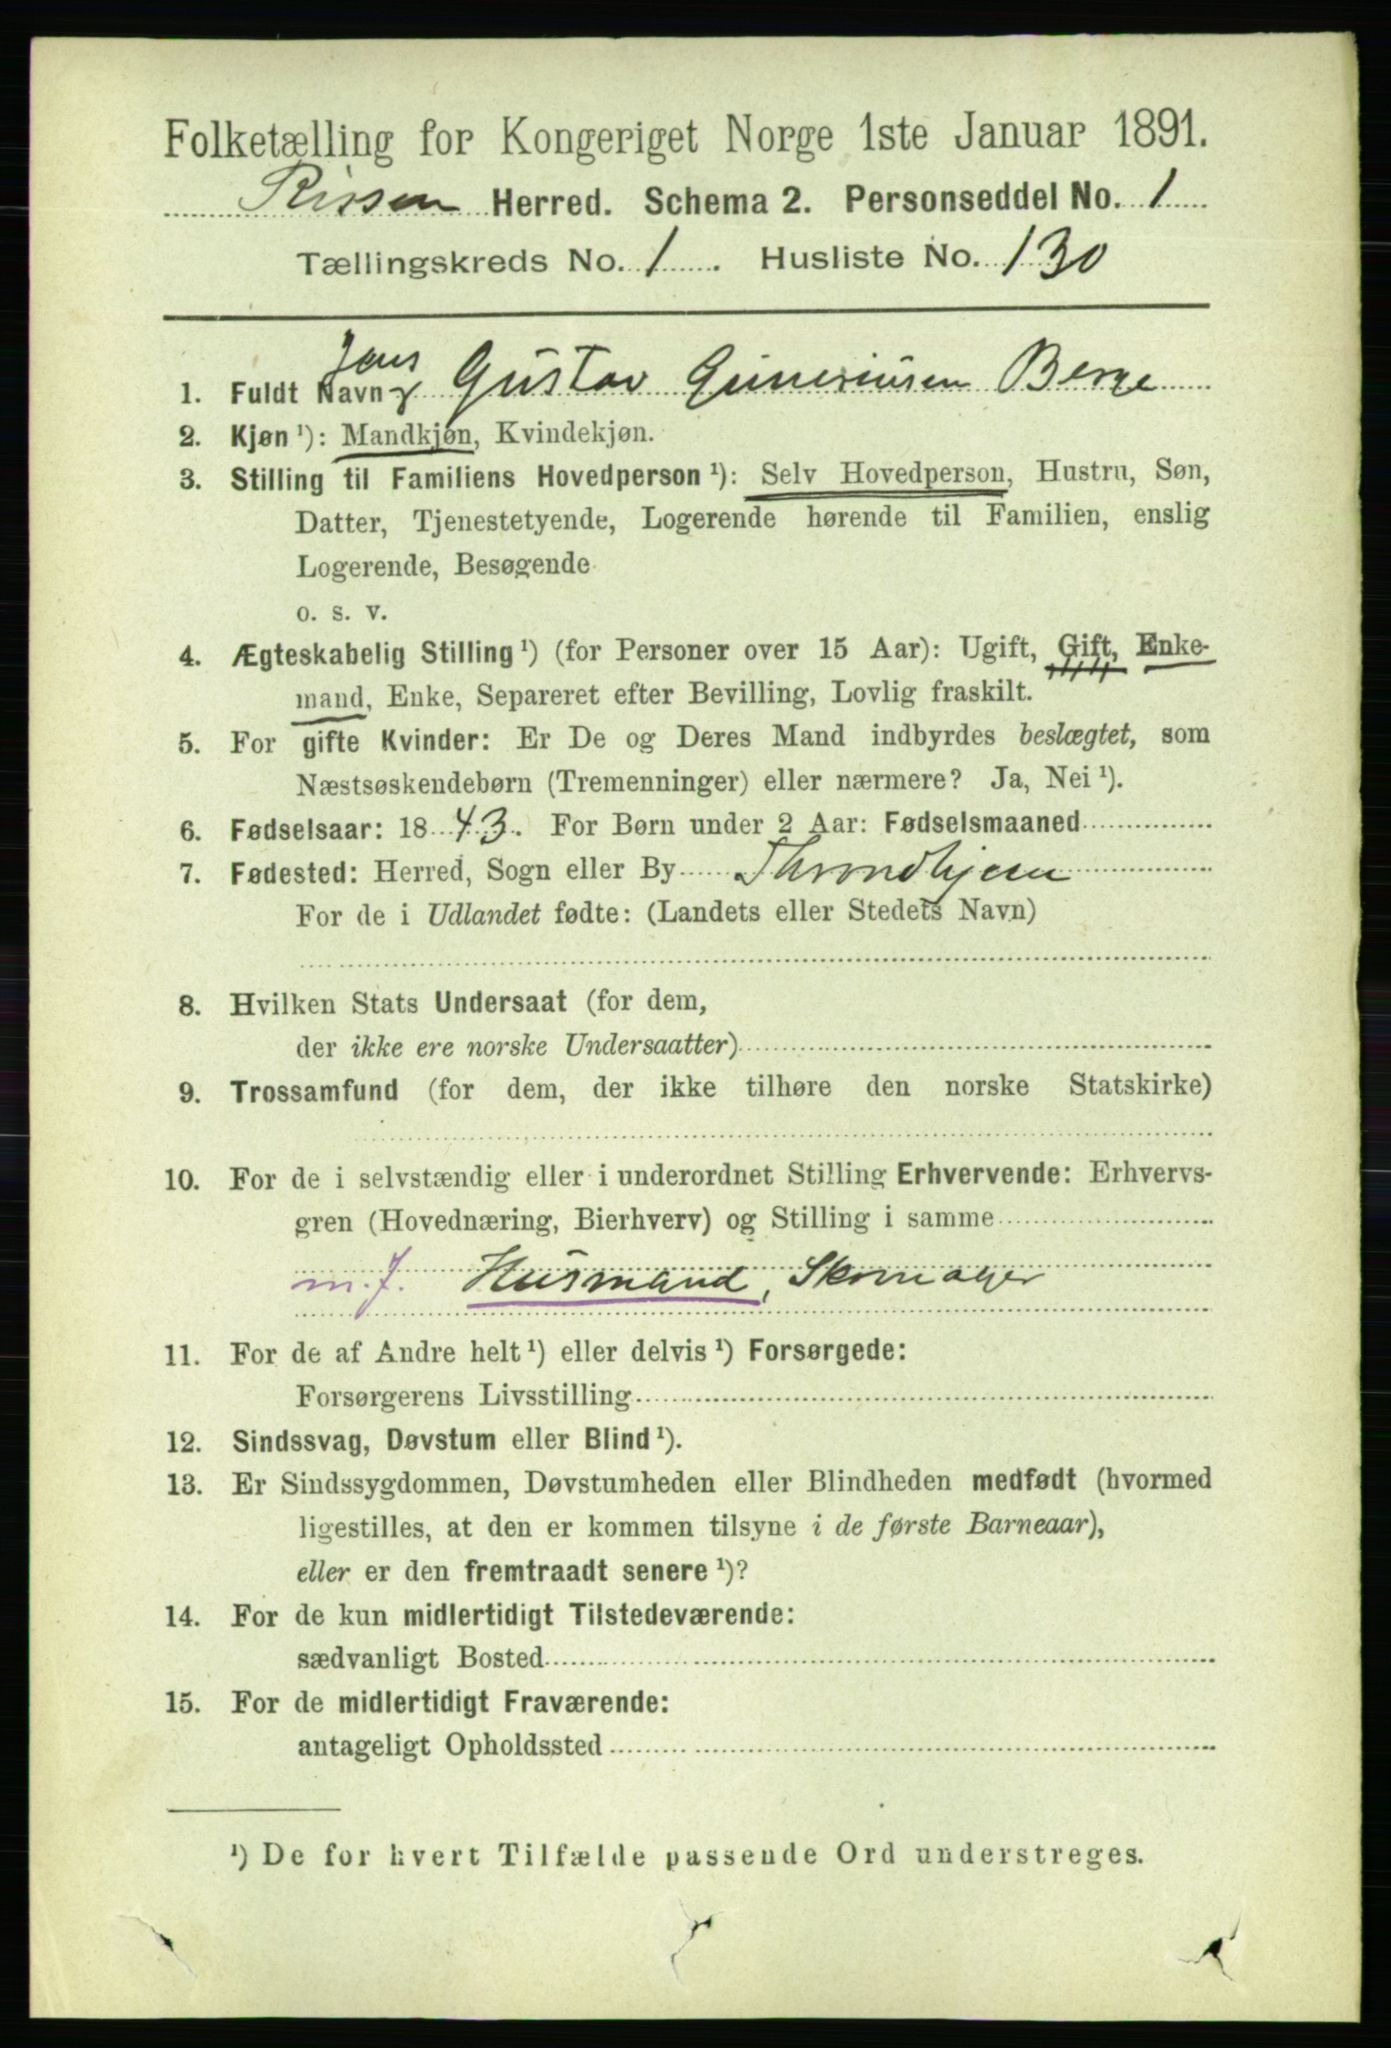 Folketælling for Kongeriget Norge 1ste Januar 1891.
Rissen Herred. Schema 2. Personseddel No. 1
Tællingskreds No. 1. Husliste No. 130
Jens
1. Fuldt Navn Gustav Guneriusen Berge
2. Kjøn ¹): Mandkjøn, Kvindekjøn.
3. Stilling til Familiens Hovedperson ¹): Selv Hovedperson, Hustru, Søn,
Datter, Tjenestetyende, Logerende hørende til Familien, enslig
Logerende, Besøgende
o. s. v.
4. Ægteskabelig Stilling ¹) (for Personer over 15 Aar): Ugift, Gift, Enke-
mand, Enke, Separeret efter Bevilling, Lovlig fraskilt.
5. For gifte Kvinder: Er De og Deres Mand indbyrdes beslægtet, som
Næstsøskendebørn (Tremenninger) eller nærmere? Ja, Nei ¹).
6. Fødselsaar: 1843. For Børn under 2 Aar: Fødselsmaaned
7. Fødested: Herred, Sogn eller By Throndhjem
For de i Udlandet fødte: (Landets eller Stedets Navn)
8. Hvilken Stats Undersaat (for dem,
der ikke ere norske Undersaatter)
9. Trossamfund (for dem, der ikke tilhøre den norske Statskirke)
10. For de i selvstændig eller i underordnet Stilling Erhvervende: Erhvervs-
gren (Hovednæring, Bierhverv) og Stilling i samme
m. J. Husmand, Skomager
11. For de af Andre helt ¹) eller delvis ¹) Forsørgede:
Forsørgerens Livsstilling
12. Sindssvag, Døvstum eller Blind ¹).
13. Er Sindssygdommen, Døvstumheden eller Blindheden medfødt (hvormed
ligestilles, at den er kommen tilsyne i de første Barneaar),
eller er den fremtraadt senere ¹)?
14. For de kun midlertidigt Tilstedeværende:
sædvanligt Bosted
15. For de midlertidigt Fraværende:
antageligt Opholdssted
¹) De for hvert Tilfælde passende Ord understreges.